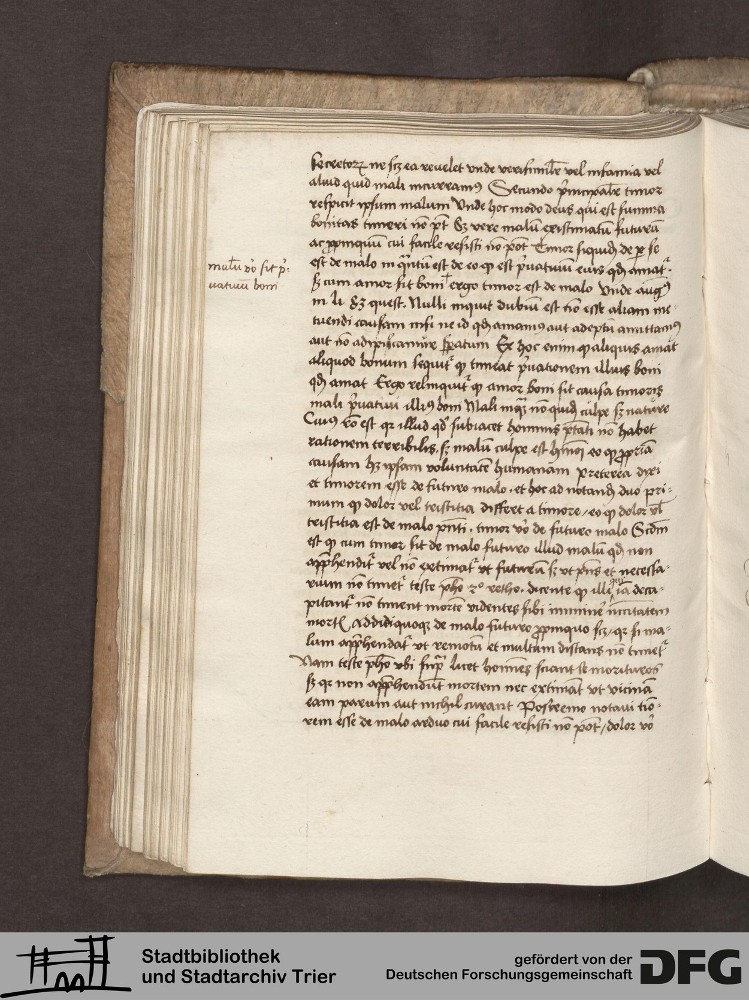 secretorz ne scz ea revelet unde verisimiliter vel infamia vel
aliud quid mali incurramus Secundo principaliter timor
respicit ipsum malum Unde hoc modo deus qui est summa
bonitas timeri no pt Sz vere malum existimatum futurum
ac propinquum cui facile resisti no pot Timor siquid de per se
est de malo in quantum est de eo qd est privatum eius qd amat
malu vo sit pri-
vativu boni
sz cum amor sit boni ergo timor est de malo Unde aug
in li 83 quest. Nulli inquit dubium est no esse aliam me-
tuendi causam nisi ne id qd amamus aut adeptum amittamus
aut no adipiscamur speratum Ex hoc enim qd aliquis amat
aliquod bonum sequitr qd timeat privationem illius boni
qd amat Ergo relinquitr qd amor boni sit causa timoris
mali privativi illius boni Mali inqz no quid culpe sz nature
Cuius ro est qr illud qd subiacet hominis ptati no habet
rationem terribilis, sz malum culpe est hmoi eo qd propriam
causam hz ipsam voluntatem humanam preterea dixi
et timorem esse de futuro malo, et hoc ad notand duo pri-
mum qd dolor vel tristitia differt a timore, eo qd dolor vl
tristitia est de malo pnti, timor vo de futuro malo Scdm
est qd cum timor sit de malo futuro illud malum qd non
apprehenditr vel no extimatr ut futurum sz ut pns et necessa-
rium no timetr teste pho 2o retho. dicente qd illi qui ia deca-
pitantr no timent mortem videntes sibi imminere necessitatem
mortis Addidi quoqz de malo futuro propinquo scz, qr si ma-
lum apprehendatr ut remotum et multum distans no timetr
Nam teste pho ubi supra licet homines sciant se morituros
sz qr non apprehendunt mortem nec extimant ut vicinam
eam parum aut nichil curant Postremo notavi timo-
rem esse de malo arduo cui facile resisti no pot, dolor vo
Stadtbibliothek
und Stadtarchiv Trier
gefördert von der
Deutschen Forschungsgemeinschaft
DFG